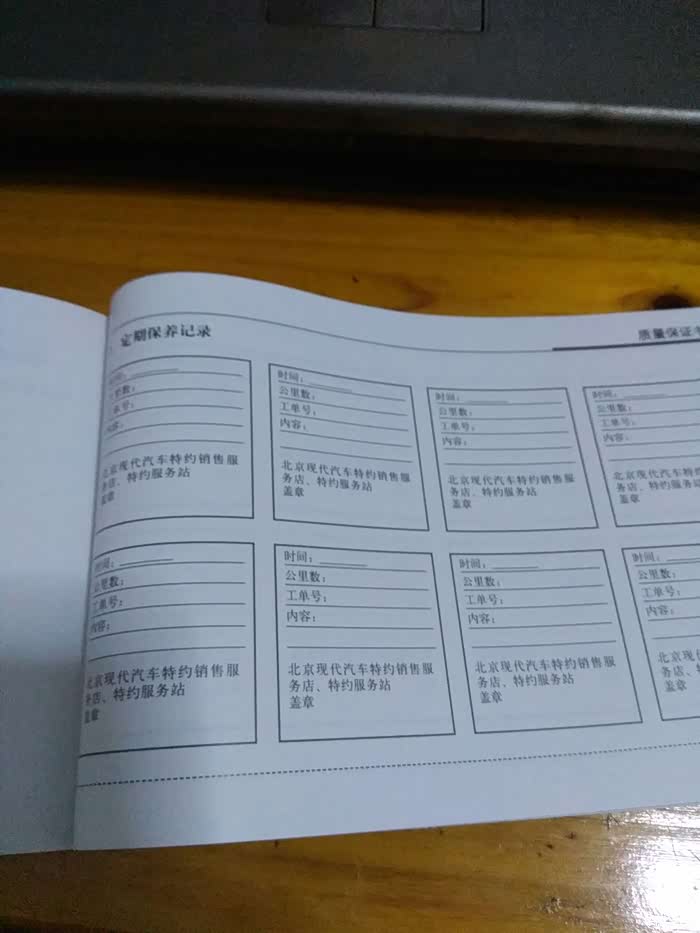 定期保养记录
质量保证书
时间:
公里数:
工单号:
内容:
北京现代汽车特约销售服
务店、特约服务站
盖章
时间:
公里数:
工单号:
内容:
北京现代汽车特约销售服
务店、特约服务站
盖章
时间:
公里数:
工单号:
内容:
北京现代汽车特约销售服
务店、特约服务站
盖章
时间:
公里数:
工单号:
内容:
北京现代汽车特约
务店、特约服务站
盖章
时间:
公里数:
工单号:
内容:
北京现代汽车特约销售服
务店、特约服务站
盖章
时间:
公里数:
工单号:
内容:
北京现代汽车特约销售服
务店、特约服务站
盖章
时间:
公里数:
工单号:
内容:
北京现代汽车特约销售服
务店、特约服务站
盖章
时间:
公里数:
工单号:
内容:
北京现代
务店、特
盖章